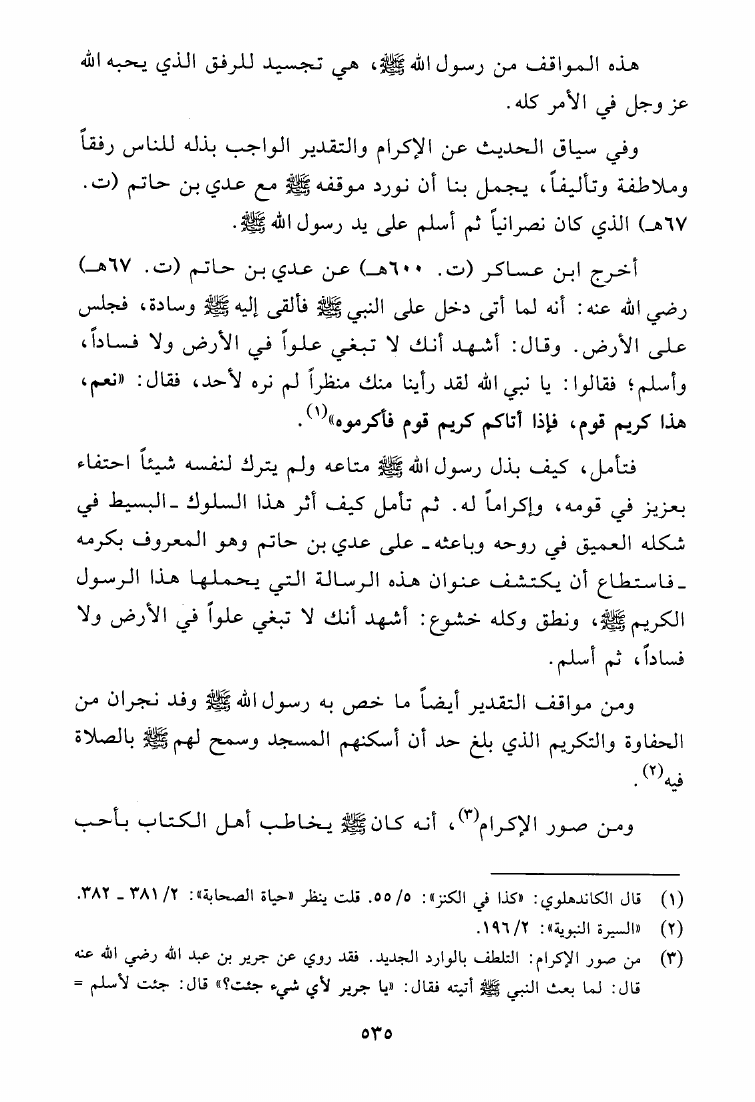 هذه المواقف من رسول الله ﷺ، هي تجسيد للرفق الذي يحبه الله
عز وجل في الأمر كله.
وفي سياق الحديث عن الإكرام والتقدير الواجب بذله للناس رفقاً
وملاطفة وتأليفاً، يجمل بنا أن نورد موقفه ﷺ مع عدي بن حاتم (ت.
٦٧هـ) الذي كان نصرانياً ثم أسلم على يد رسول الله ﷺ.
أخرج ابن عساكر (ت. ٦٠٠هـ) عن عدي بن حاتم (ت. ٦٧هـ)
رضي الله عنه: أنه لما أتى دخل على النبي ﷺ فألقى إليه ﷺ وسادة، فجلس
على الأرض. وقال: أشهد أنك لا تبغي علواً في الأرض ولا فساداً،
وأسلم؛ فقالوا: يا نبي الله لقد رأينا منك منظراً لم نره لأحد، فقال: «نعم،
هذا كريم قوم، فإذا أتاكم كريم قوم فأكرموه»(١).
فتأمل، كيف بذل رسول الله ﷺ متاعه ولم يترك لنفسه شيئاً احتفاء
بعزيز في قومه، وإكراماً له. ثم تأمل كيف أثر هذا السلوك ـ البسيط في
شكله العميق في روحه وباعثه ـ على عدي بن حاتم وهو المعروف بكرمه
ـ فاستطاع أن يكتشف عنوان هذه الرسالة التي يحملها هذا الرسول
الكريم ﷺ، ونطق وكله خشوع: أشهد أنك لا تبغي علواً في الأرض ولا
فساداً، ثم أسلم.
ومن مواقف التقدير أيضاً ما خص به رسول الله ﷺ وفد نجران من
الحفاوة والتكريم الذي بلغ حد أن أسكنهم المسجد وسمح لهم ﷺ بالصلاة
فيه(٢).
ومن صور الإكرام(٣)، أنه كان ﷺ يخاطب أهل الكتاب بأحب
(١) قال الكاندهلوي: «كذا في الكنز»: ٥/ ٥٥. قلت ينظر «حياة الصحابة»: ٢/ ٣٨١ ـ ٣٨٢.
(٢) «السيرة النبوية»: ٢/ ١٩٦.
(٣) من صور الإكرام: التلطف بالوارد الجديد. فقد روي عن جرير بن عبد الله رضي الله عنه
قال: لما بعث النبي ﷺ أتيته فقال: «يا جرير لأي شيء جئت؟» قال: جئت لأسلم =
٥٣٥